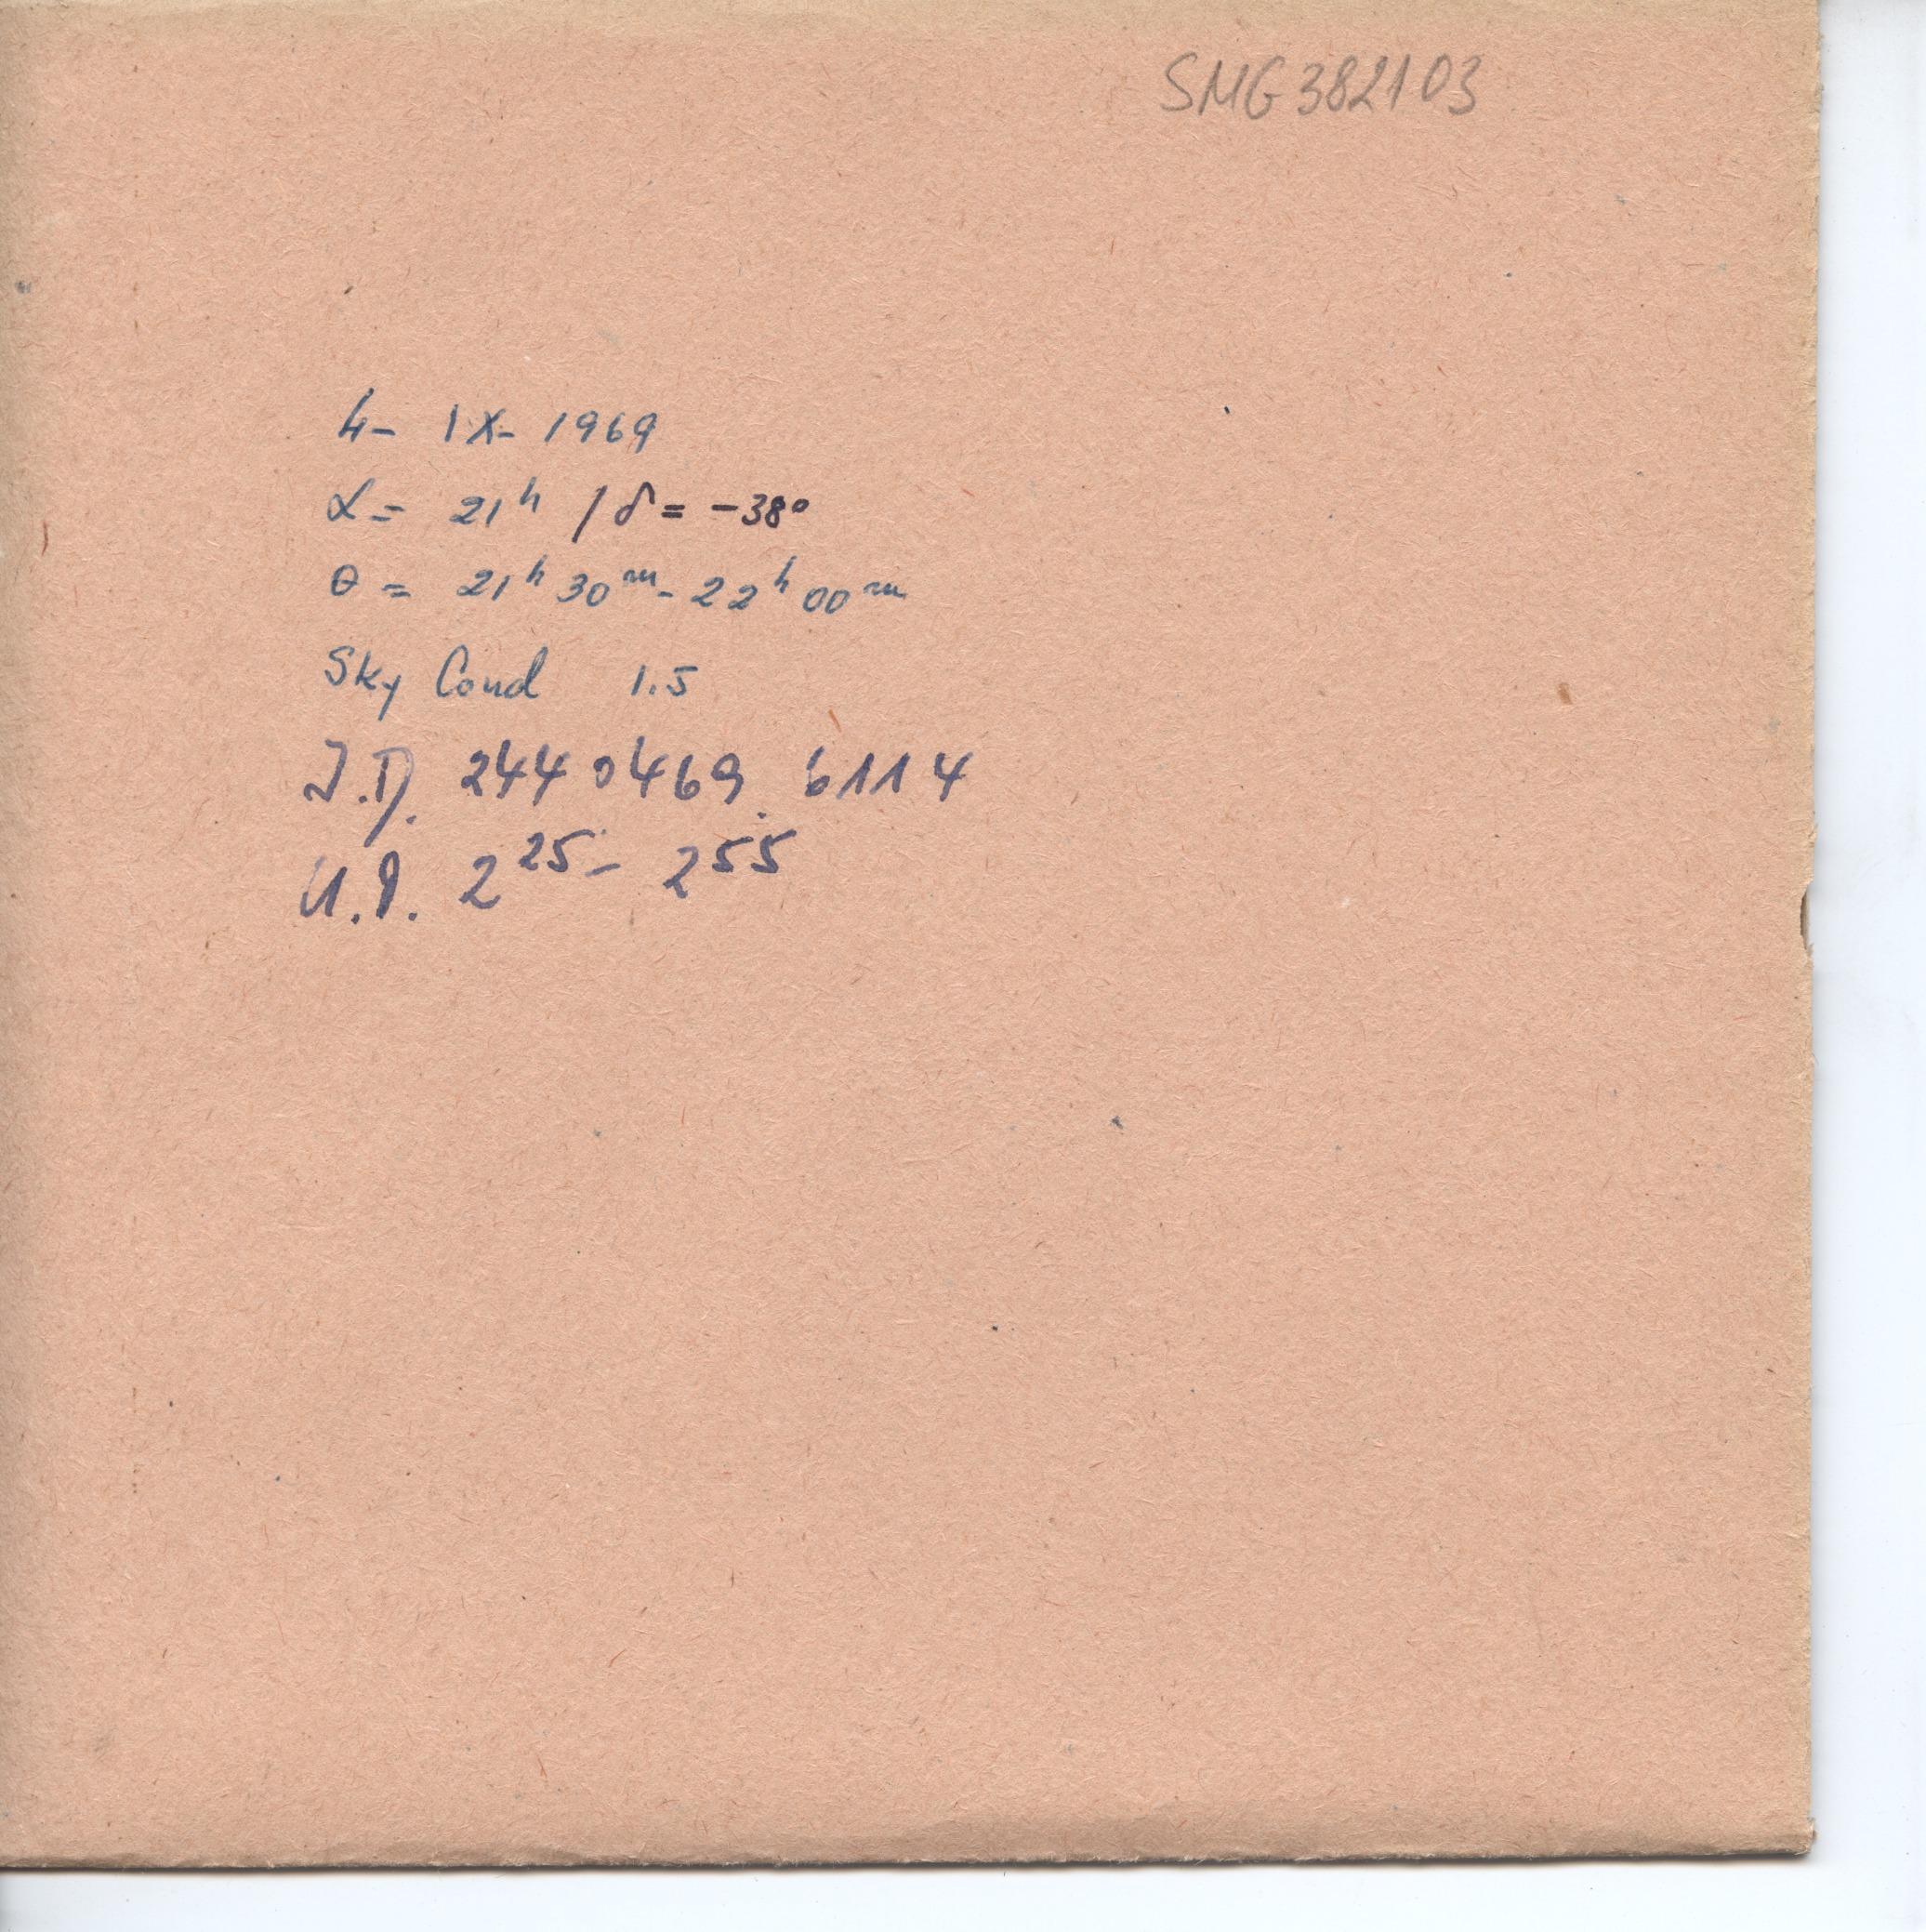 SMG382103
4- IX- 1969
α= 21ʰ / δ= -38°
θ= 21ʰ30ᵐ-22ʰ00ᵐ
Sky Cond 1.5
J.D. 2440469.6114
U.T. 2²⁵- 2⁵⁵